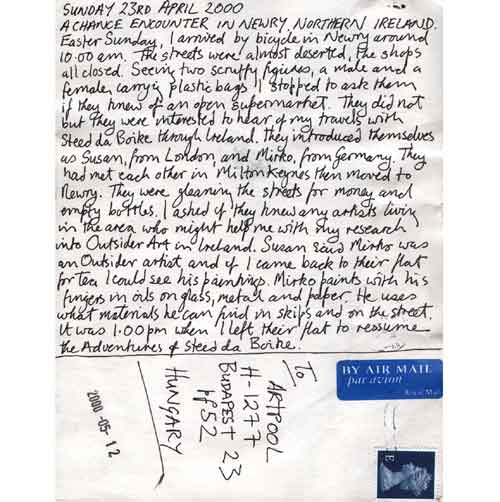 SUNDAY 23RD APRIL 2000
A CHANCE ENCOUNTER IN NEWRY NORTHERN IRELAND.
Easter Sunday, I arrived by bicycle in Newry around
10.00 am. The streets were almost deserted, the shops
all closed. Seeing two scruffy figures, a male and a
female, carrying plastic bags I stopped to ask them
if they knew of an open supermarket. They did not
but they were interested to hear of my travels with
Steed da Boike through Ireland. They introduced themselves
as Susan, from London and Mirko, from Germany. They
had met each other in Milton Keynes then moved to
Newry. They were gleaning the streets for money and
empty bottles. I asked if they knew any artists living
in the area who might help me with my research
into Outsider Art in Ireland. Susan said Mirko was
an Outsider artist, and if I came back to their flat
for tea I could see his paintings. Mirko paints with his
fingers in oils on glass, metal and paper. He uses
what materials he can find in skips and on the street.
It was 1.00 pm when I left their flat to ressume
the Adventures of Steed da Boike.
To
ARTPOOL
H-1277
BUDAPEST 23
pf 52
HUNGARY
2000-05-12
BY AIR MAIL
par avion
Royal Mail
E